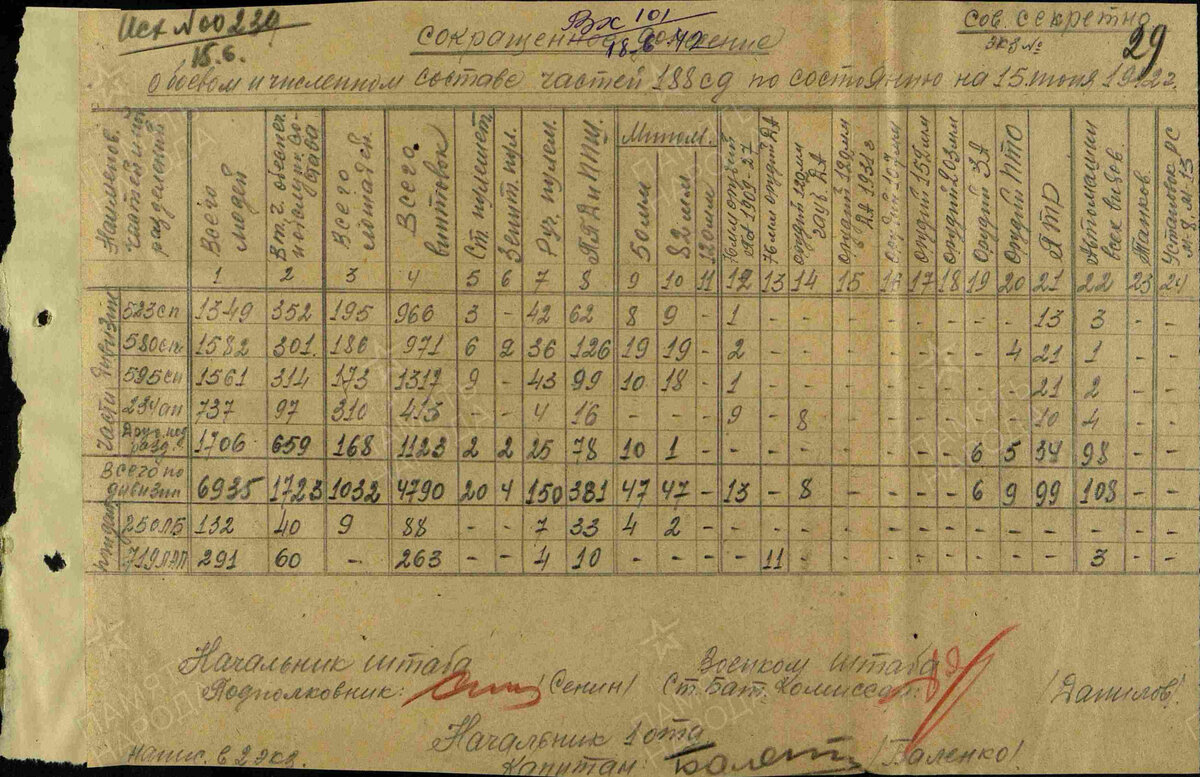 Исх № 00220
15.6.
Вх 101
18.6.42
Сов. секретно
экз №
29
Сокращенное донесение
о боевом и численном составе частей 188 сд по состоянию на 15 июня 1942 г.
Наименов. частей и подразделений | Всего людей | В т.ч. обоепол. нач. служ. со- става | Всего лошадей | Всего винтовок | Ст. пулемет. | Зенит. пул. | Руч. пулем. | ППД и ППШ. | Мином. 50мм | 82мм | 120мм | орудий ПА 1909-27 | орудий ПА | орудий 120мм гауб. | орудий 122мм 1931г | орудий 107мм | орудий 152мм | орудий 203мм | орудий ЗА | орудий ПТО | ПТР | Автомашин всех видов. | Танков. | Установок РС М-8, М-13
1 2 3 4 5 6 7 8 9 10 11 12 13 14 15 16 17 18 19 20 21 22 23 24
Части дивизии
523 сп 1349 352 195 966 3 - 42 62 8 9 - 1 - - - - - - - - 13 3 - -
580 сп 1582 301 186 971 6 2 36 126 19 19 - 2 - - - - - - - 4 21 1 - -
595 сп 1561 314 173 1317 9 - 43 99 10 18 - 1 - - - - - - - - 21 2 - -
234 ап 737 97 310 413 - - 4 16 - - - 9 - 8 - - - - - - 10 4 - -
Друг. под разд. 1706 659 168 1123 2 2 25 78 10 1 - - - - - - - - 6 5 34 98 - -
Всего по дивизии 6935 1723 1032 4790 20 4 150 381 47 47 - 13 - 8 - - - - 6 9 99 108 - -
Придан.
250 ЛБ 132 40 9 88 - - 7 33 4 2 - - - - - - - - - - - - - -
719 ПАП 291 60 - 263 - - 4 10 - - - - 11 - - - - - - - - 3 - -
Начальник штаба
Подполковник: /Сенин/
Военком штаба
Ст. Бат. Комиссар: /Данилов/
Начальник 1 отд
Капитан: /Баленко/
Напис. в 2 экз.
ПАМЯТЬ НАРОДА